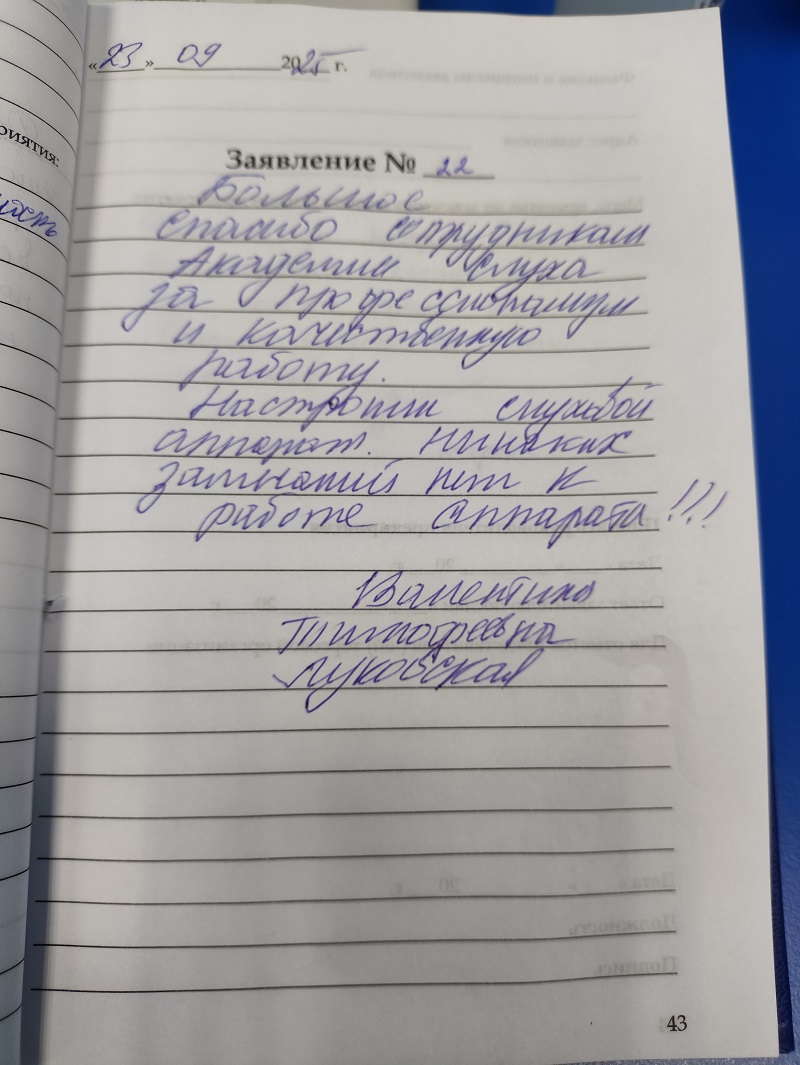 «23» 09 2025 г.
риятия:
Заявление № 22
Большое
спасибо сотрудникам
Академии слуха
за профессионализм
и качественную
работу.
Настроили слуховой
аппарат. Никаких
замечаний нет к
работе аппарата!!!
Валентина
Тимофеевна
Луковская
43